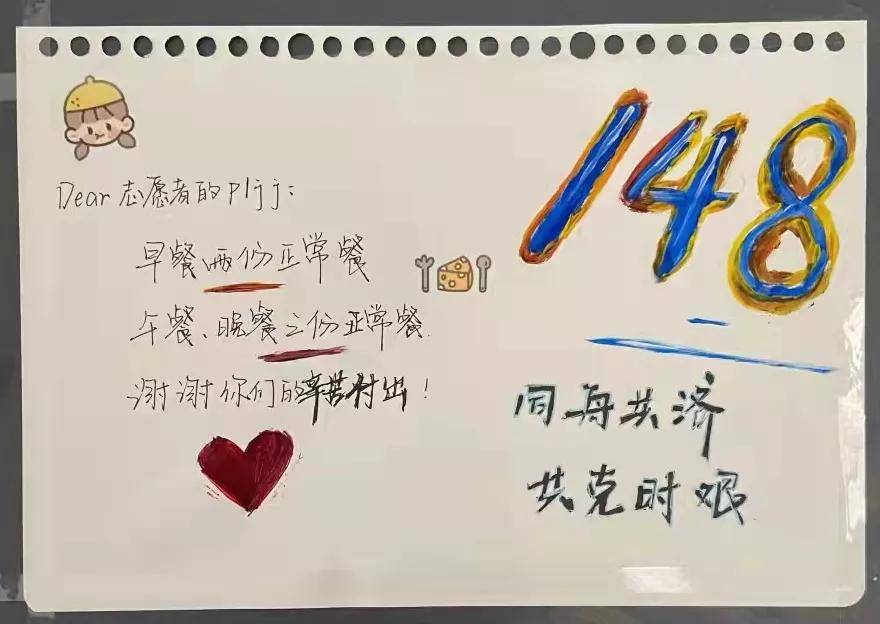 Dear 志愿者的pljj:
早餐两份正常餐
午餐、晚餐三份正常餐
谢谢你们的辛苦付出!
148
同舟共济
共克时艰